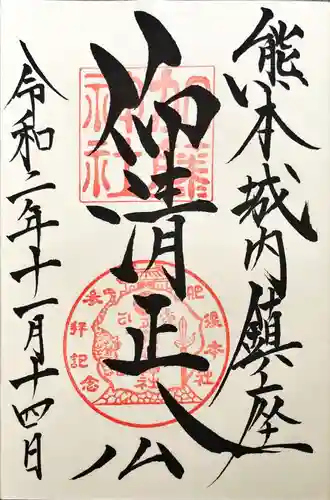 熊本城内鎮座
仰清正公
加藤神社
肥後本社
参拝記念
令和二年十一月十四日